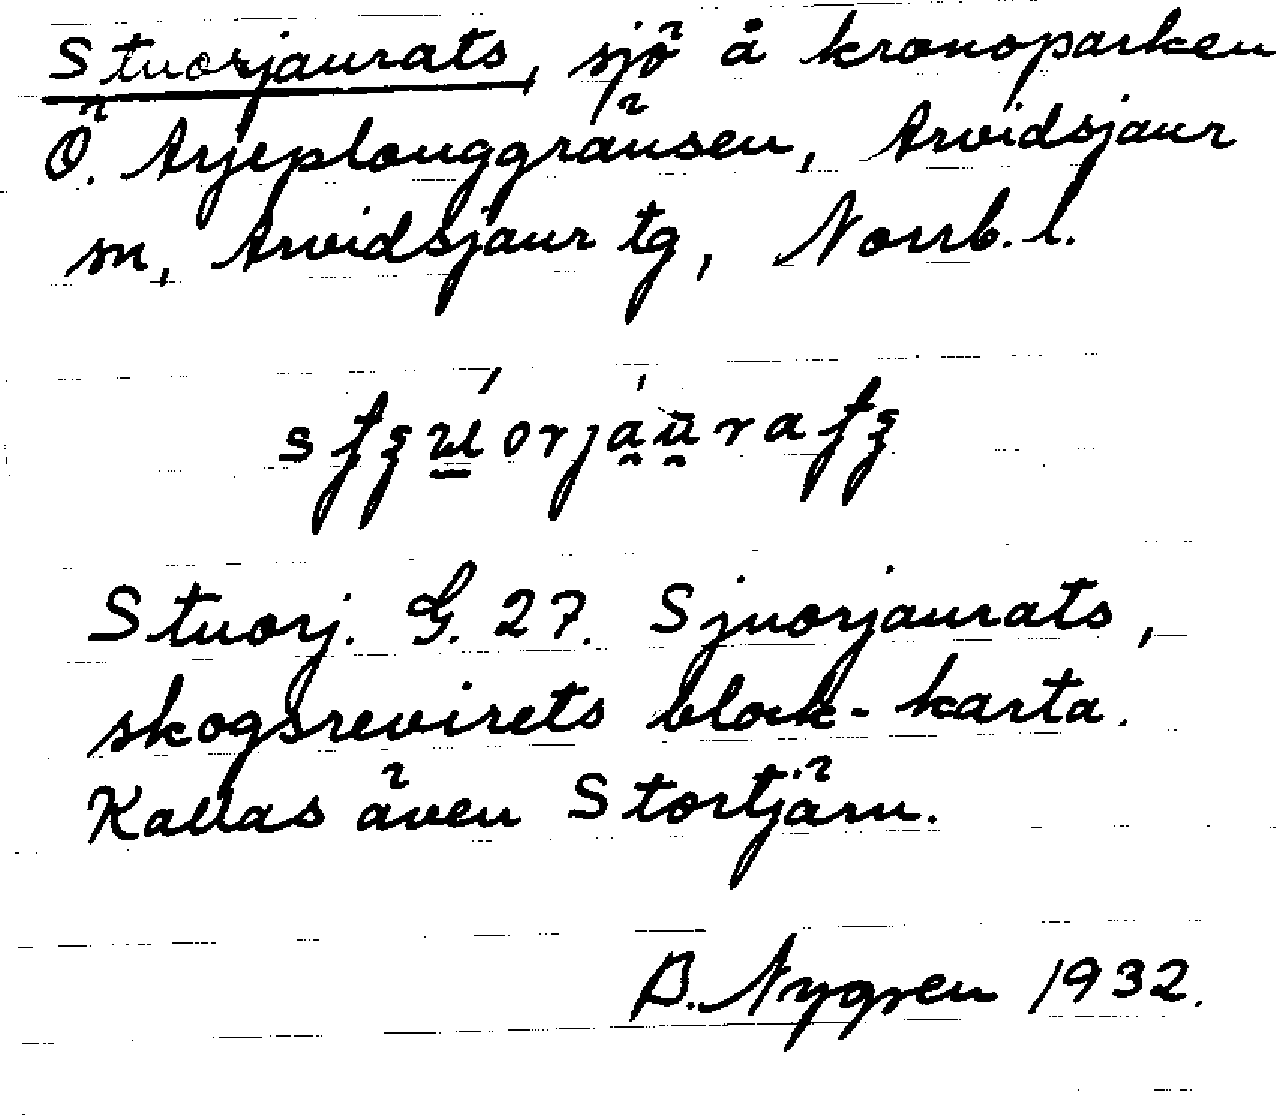 Stuorjaurats, sjö å kronoparken
Ö. Arjeplouggränsen, Arvidsjaur
sn, Arvidsjaur tg, Norrb. l.
Stuorj. G. 27. Sjuorjaurats,
skogsrevirets block-karta.
Kallas även Stortjärn.
B. Nygren 1932.